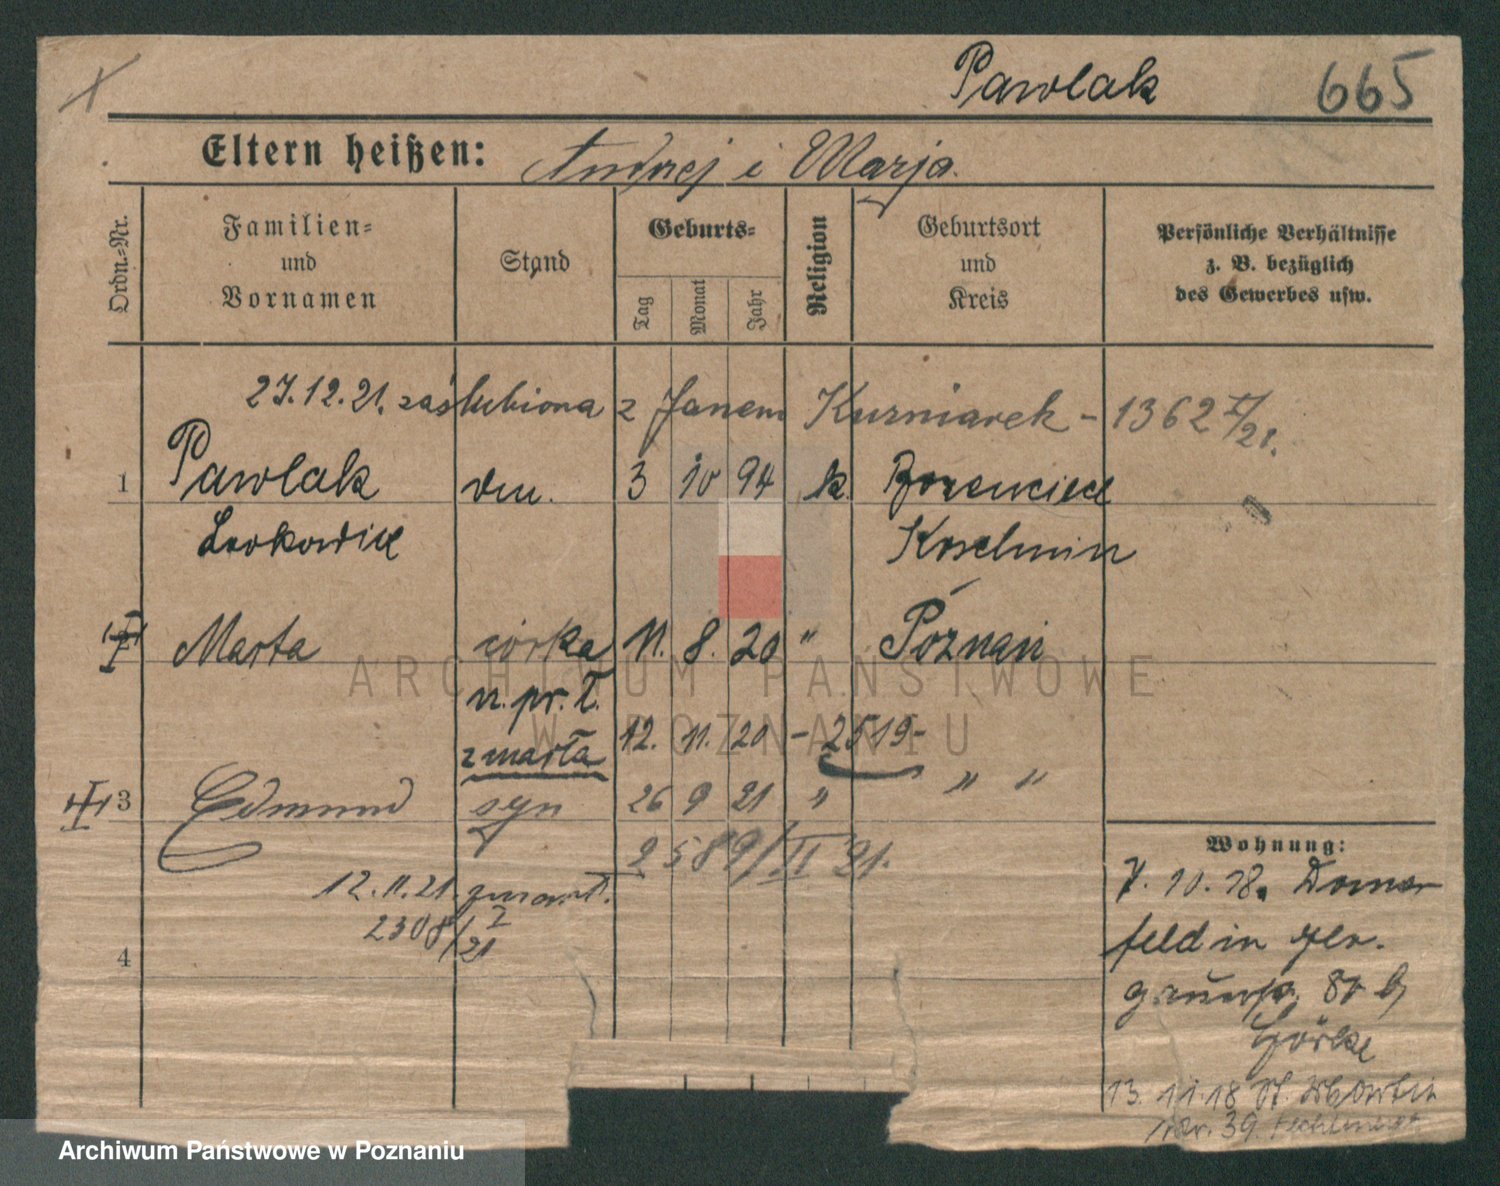 Pawlak 665
Eltern heißen: Andrzej i Marja.
Ordn.-Nr.
Familien-
und
Vornamen
Stand
Geburts-
Tag
Monat
Jahr
Religion
Geburtsort
und
Kreis
Persönliche Verhältnisse
z. B. bezüglich
des Gewerbes usw.
27.12.21. zaślubiona z Janem Kuzniarek - 1362 I/21.
1 Pawlak 3 10 94 k.
Koschmin
Marta córka 11. 8. 20 " Poznań
n. pr. T.
zmarła 12. 11. 20 - 2519-
3 Edmund syn 26 9 21 " " "
2589/II 21.
12.11.21. zmarł.
2308/I 21
4
Wohnung:
7. 10. 18.
feld in
80 b
Görke
13. 11. 18
39.
ARCHIWUM PAŃSTWOWE
W POZNANIU
Archiwum Państwowe w Poznaniu